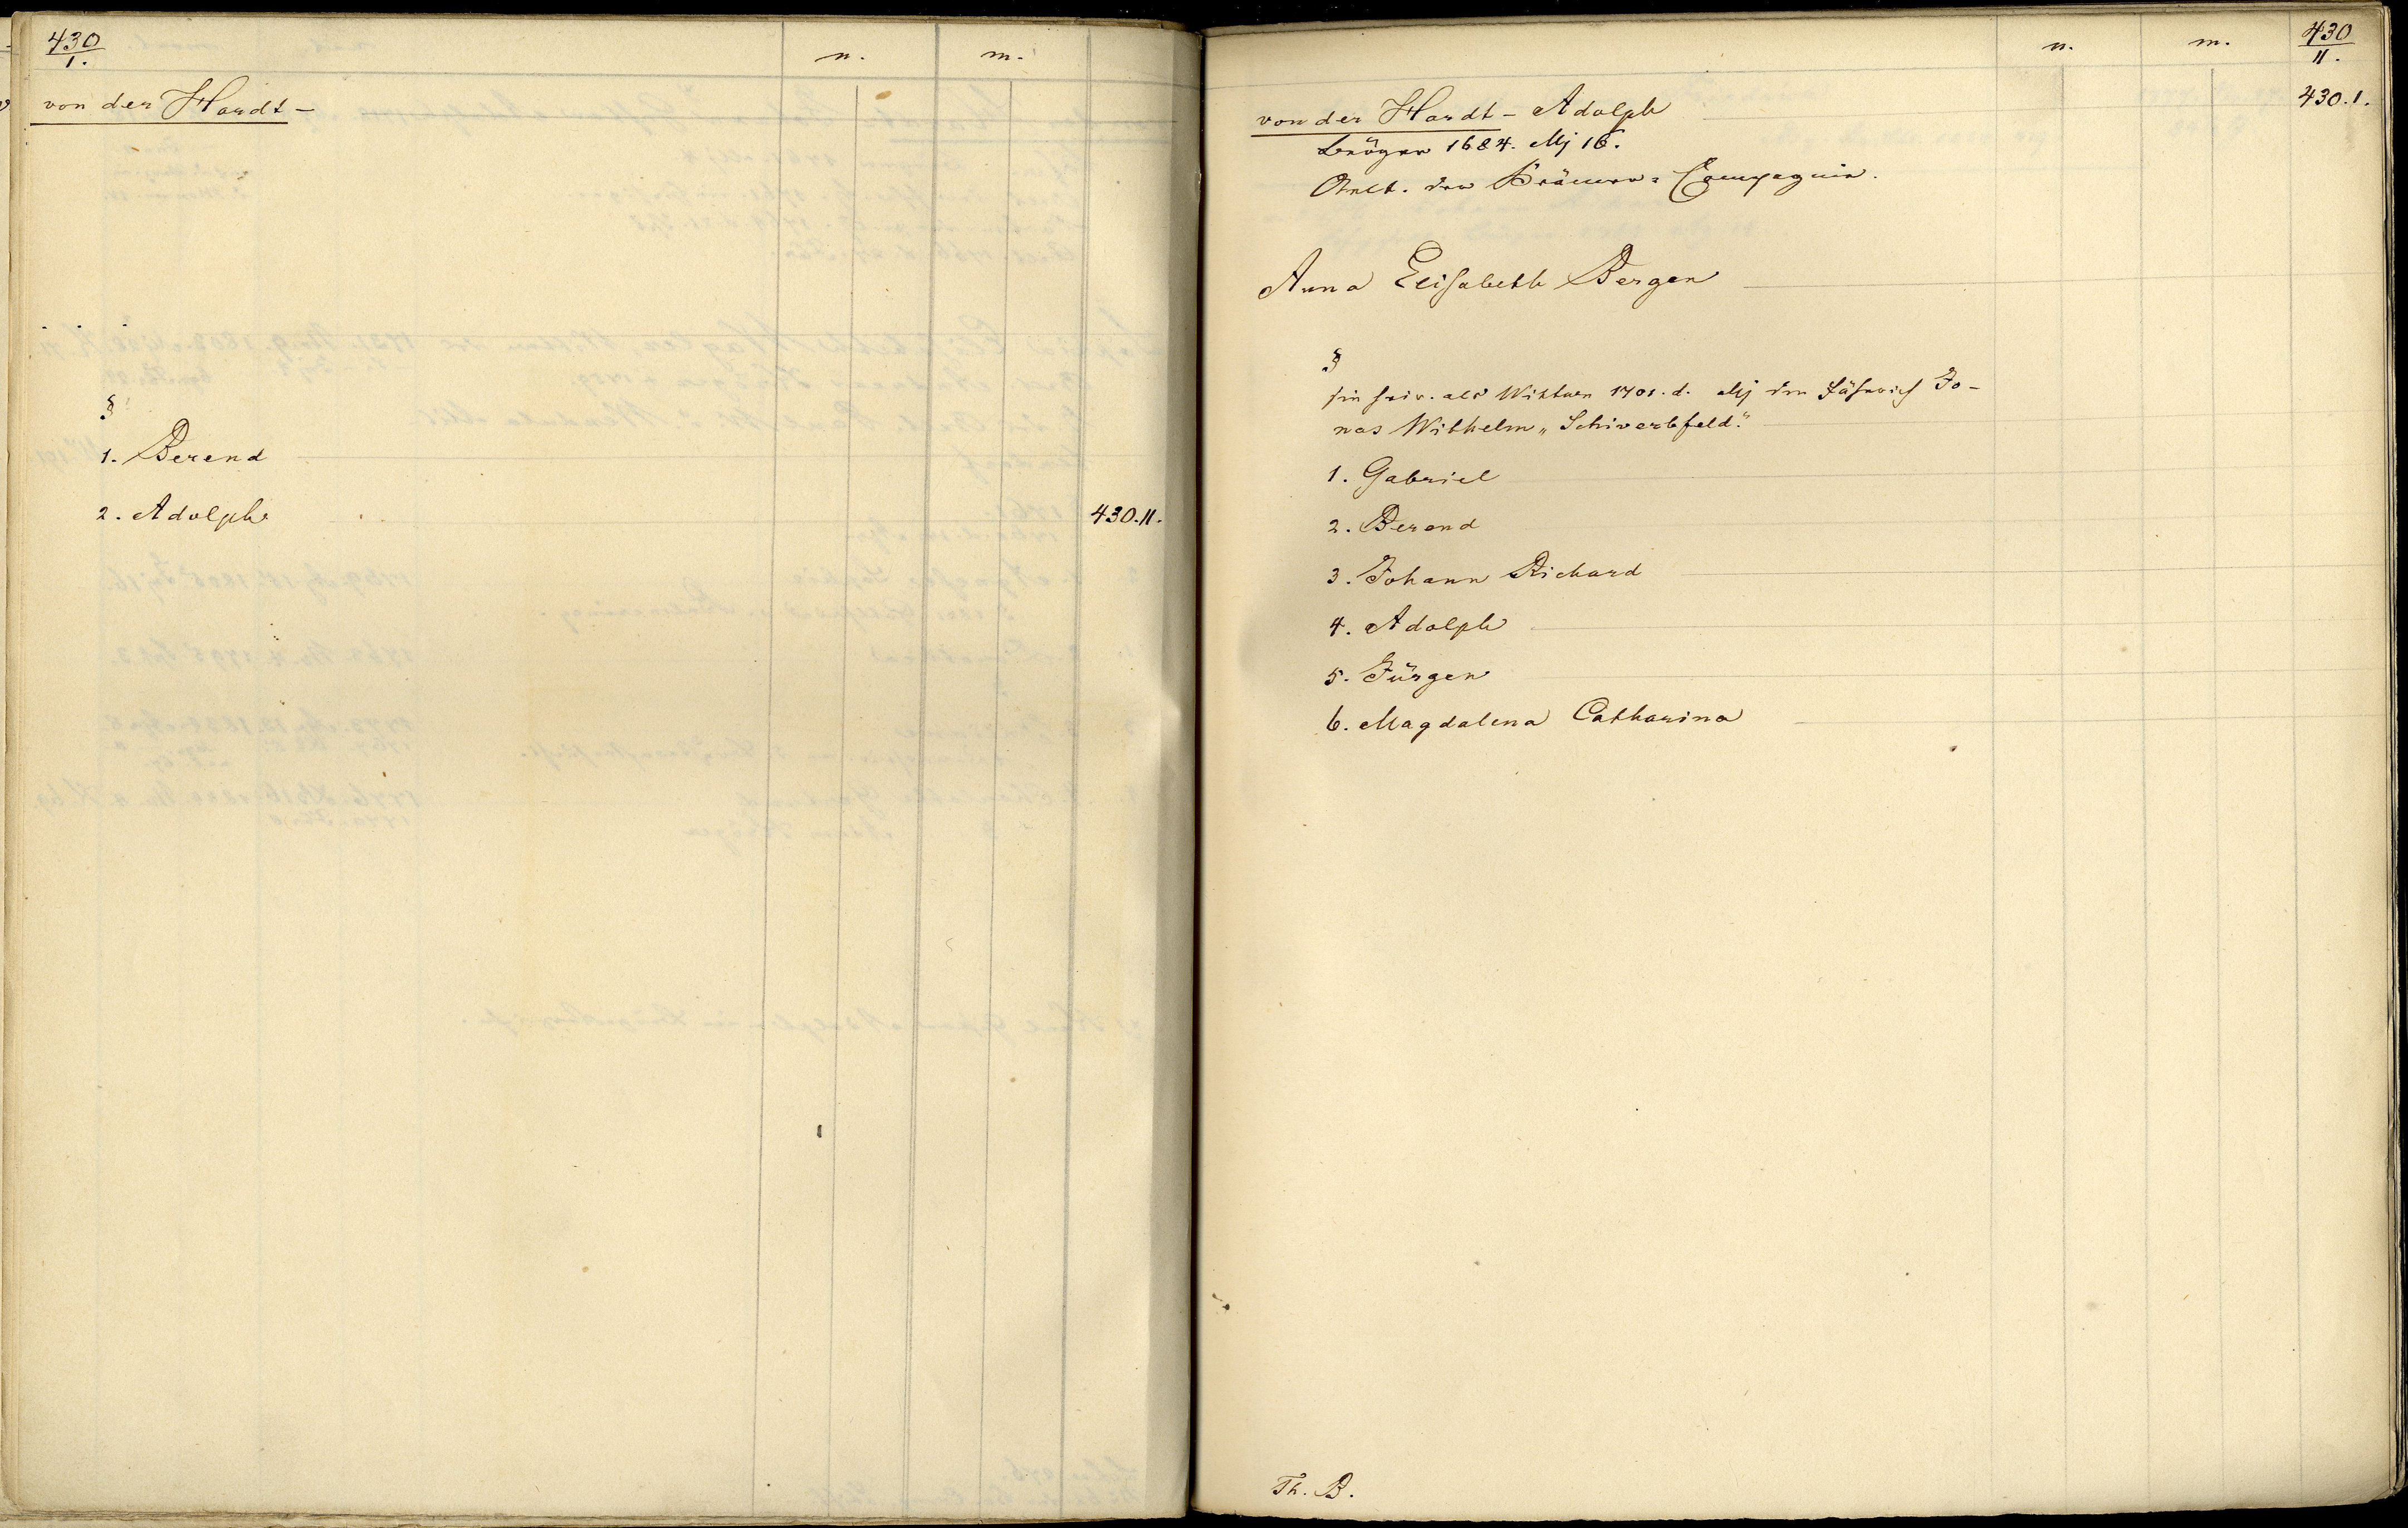 430
1.
n.
m.
von der Hardt -
§
1. Berend
2. Adolph 430.11.
n.
m.
430
11.
430.1.
von der Hardt - Adolph
Bürger 1684. Mj 16.
Aelt. der Krämer= Compagnie.
Anna Elisabeth Bergen
§
sie heir. als Wittwe 1701. d. Mj den Fähnrich Jo-
nas Wilhelm „Schiverbfeld."
1. Gabriel
2. Berend
3. Johann Richard
4. Adolph
5. Jürgen
6. Magdalena Catharina
Th. B.